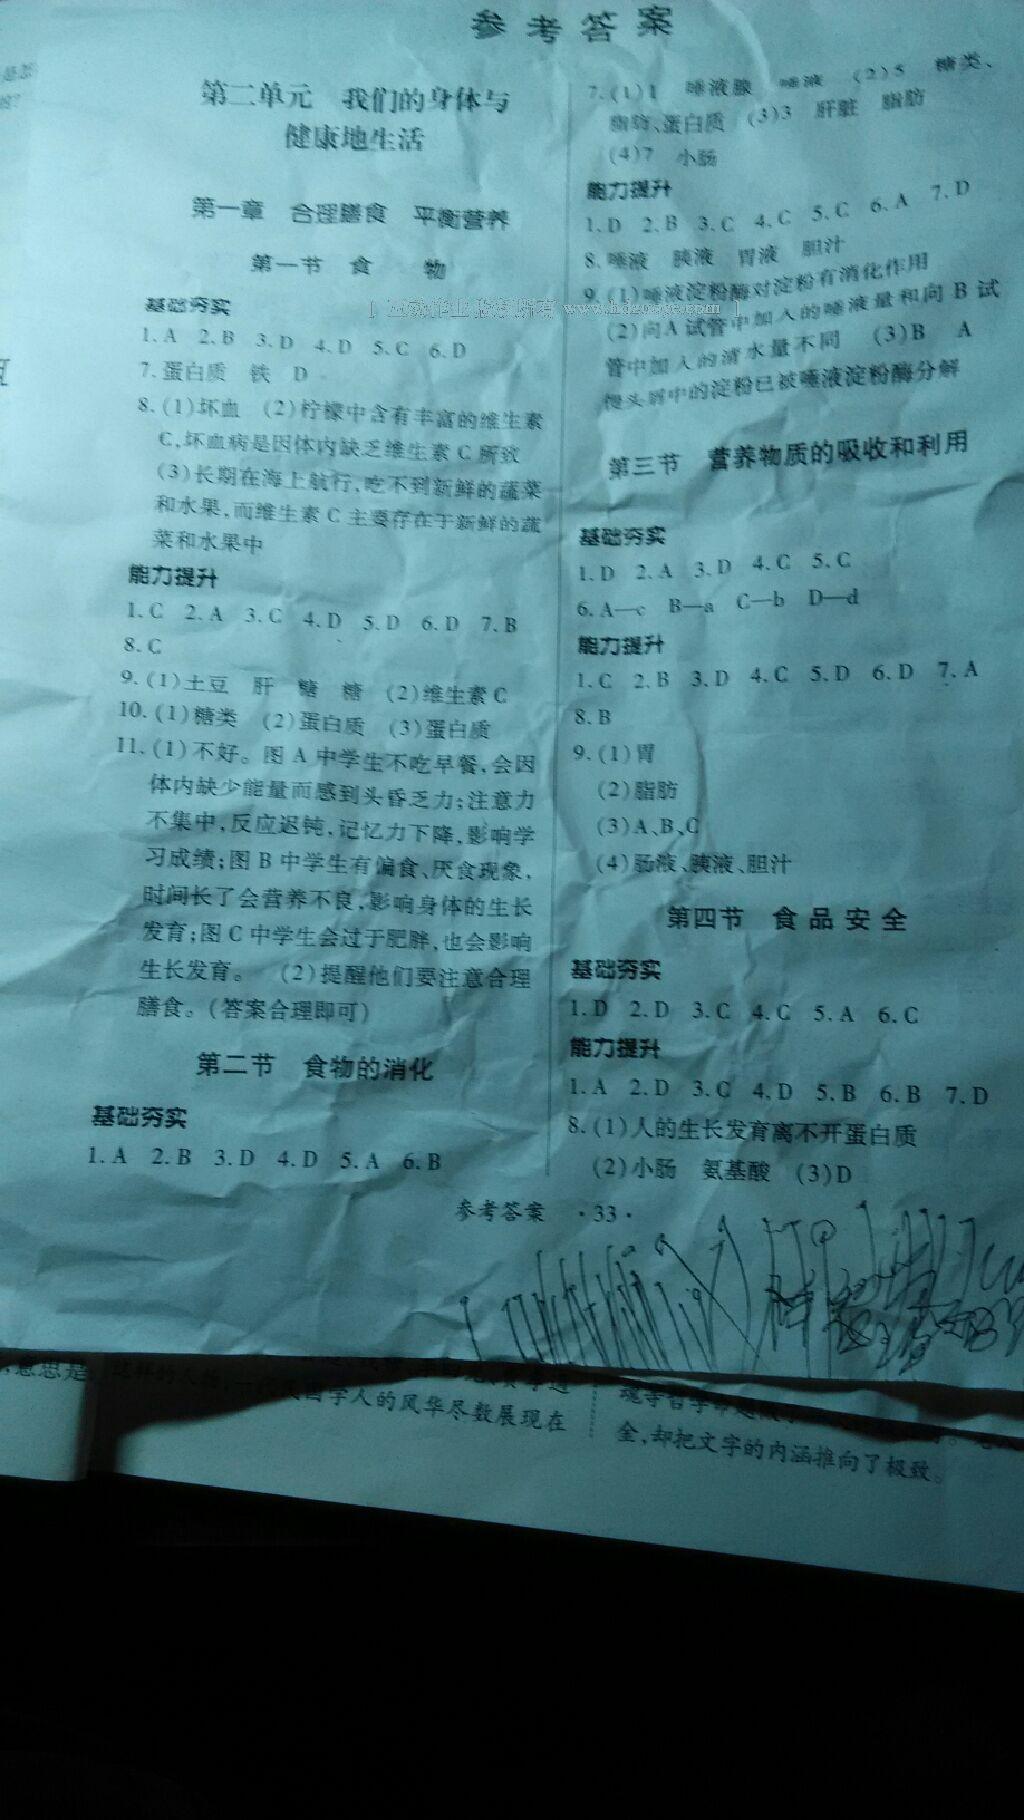 参考答案
第二单元 我们的身体与
健康地生活
第一章 合理膳食 平衡营养
第一节 食 物
基础夯实
1. A 2. B 3. D 4. D 5. C 6. D
7. 蛋白质 铁 D
8. (1)坏血 (2)柠檬中含有丰富的维生素
C,坏血病是因体内缺乏维生素 C 所致
(3)长期在海上航行,吃不到新鲜的蔬菜
和水果,而维生素 C 主要存在于新鲜的蔬
菜和水果中
能力提升
1. C 2. A 3. C 4. D 5. D 6. D 7. B
8. C
9. (1)土豆 肝 糖 糖 (2)维生素 C
10. (1)糖类 (2)蛋白质 (3)蛋白质
11. (1)不好。图 A 中学生不吃早餐,会因
体内缺少能量而感到头昏乏力;注意力
不集中,反应迟钝,记忆力下降,影响学
习成绩;图 B 中学生有偏食、厌食现象,
时间长了会营养不良,影响身体的生长
发育;图 C 中学生会过于肥胖,也会影响
生长发育。 (2)提醒他们要注意合理
膳食。(答案合理即可)
第二节 食物的消化
基础夯实
1. A 2. B 3. D 4. D 5. A 6. B
7. (1)1 唾液腺 唾液 (2)5 糖类、
脂肪、蛋白质 (3)3 肝脏 脂肪
(4)7 小肠
能力提升
1. D 2. B 3. C 4. C 5. C 6. A 7. D
8. 唾液 胰液 胃液 胆汁
9. (1)唾液淀粉酶对淀粉有消化作用
(2)向 A 试管中加入的唾液量和向 B 试
管中加入的清水量不同 (3)B A
馒头屑中的淀粉已被唾液淀粉酶分解
第三节 营养物质的吸收和利用
基础夯实
1. D 2. A 3. D 4. C 5. C
6. A—c B—a C—b D—d
能力提升
1. C 2. B 3. D 4. C 5. D 6. D 7. A
8. B
9. (1)胃
(2)脂肪
(3)A、B、C
(4)肠液、胰液、胆汁
第四节 食品安全
基础夯实
1. D 2. D 3. C 4. C 5. A 6. C
能力提升
1. A 2. D 3. C 4. D 5. B 6. B 7. D
8. (1)人的生长发育离不开蛋白质
(2)小肠 氨基酸 (3)D
参考答案 ·33·
学人的风华尽数展现在
全,却把文字的内涵推向了极致。